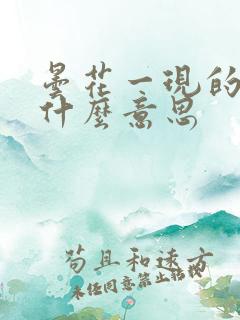 曇花一現的
什麼意思
苟且和遠方
未经同意禁止转载